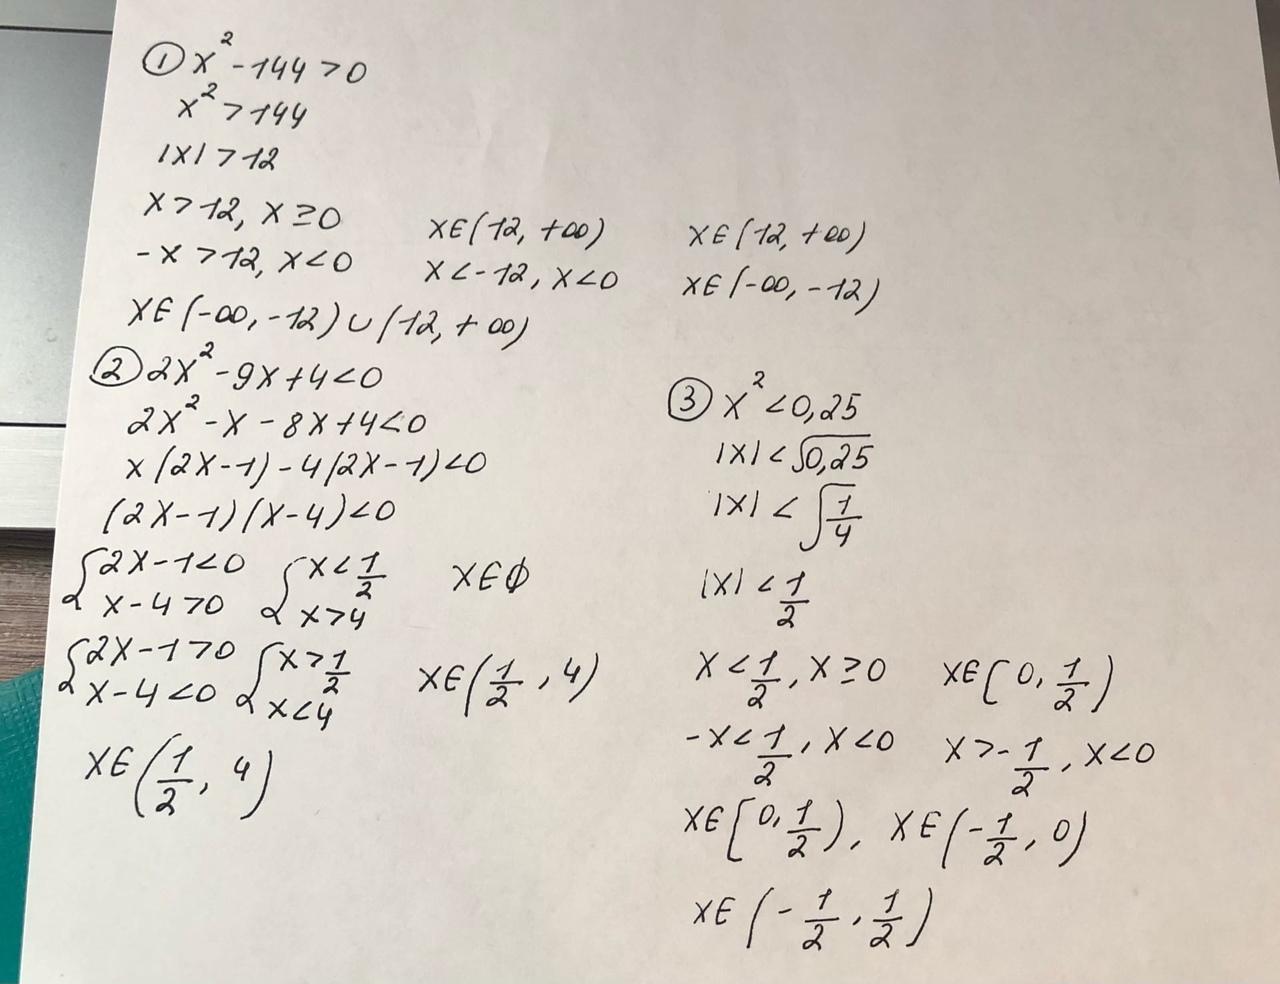 ① x² - 144 > 0
x² > 144
|x| > 12
x > 12, x ≥ 0    x ∈ (12, +∞)    x ∈ (12, +∞)
-x > 12, x < 0    x < -12, x < 0    x ∈ (-∞, -12)
x ∈ (-∞, -12) ∪ (12, +∞)
② 2x² - 9x + 4 < 0
2x² - x - 8x + 4 < 0
x(2x-1) - 4(2x-1) < 0
(2x-1)(x-4) < 0
{2x-1 < 0    {x < 1/2    x ∈ ∅
x-4 > 0    x > 4
{2x-1 > 0    {x > 1/2    x ∈ (1/2, 4)
x-4 < 0    x < 4
x ∈ (1/2, 4)
③ x² < 0,25
|x| < √0,25
|x| < √1/4
|x| < 1/2
x < 1/2, x ≥ 0    x ∈ [0, 1/2)
-x < 1/2, x < 0    x > -1/2, x < 0
x ∈ [0, 1/2), x ∈ (-1/2, 0)
x ∈ (-1/2, 1/2)